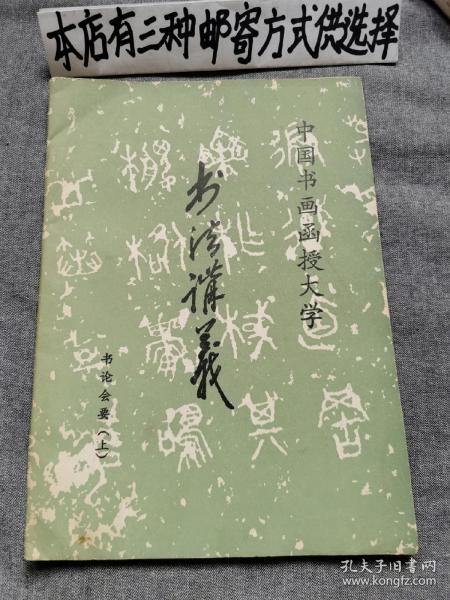 本店有三种邮寄方式供选择
中国书画函授大学
书法講義
书论会要（上）
孔夫子旧书网
www.kongfz.com